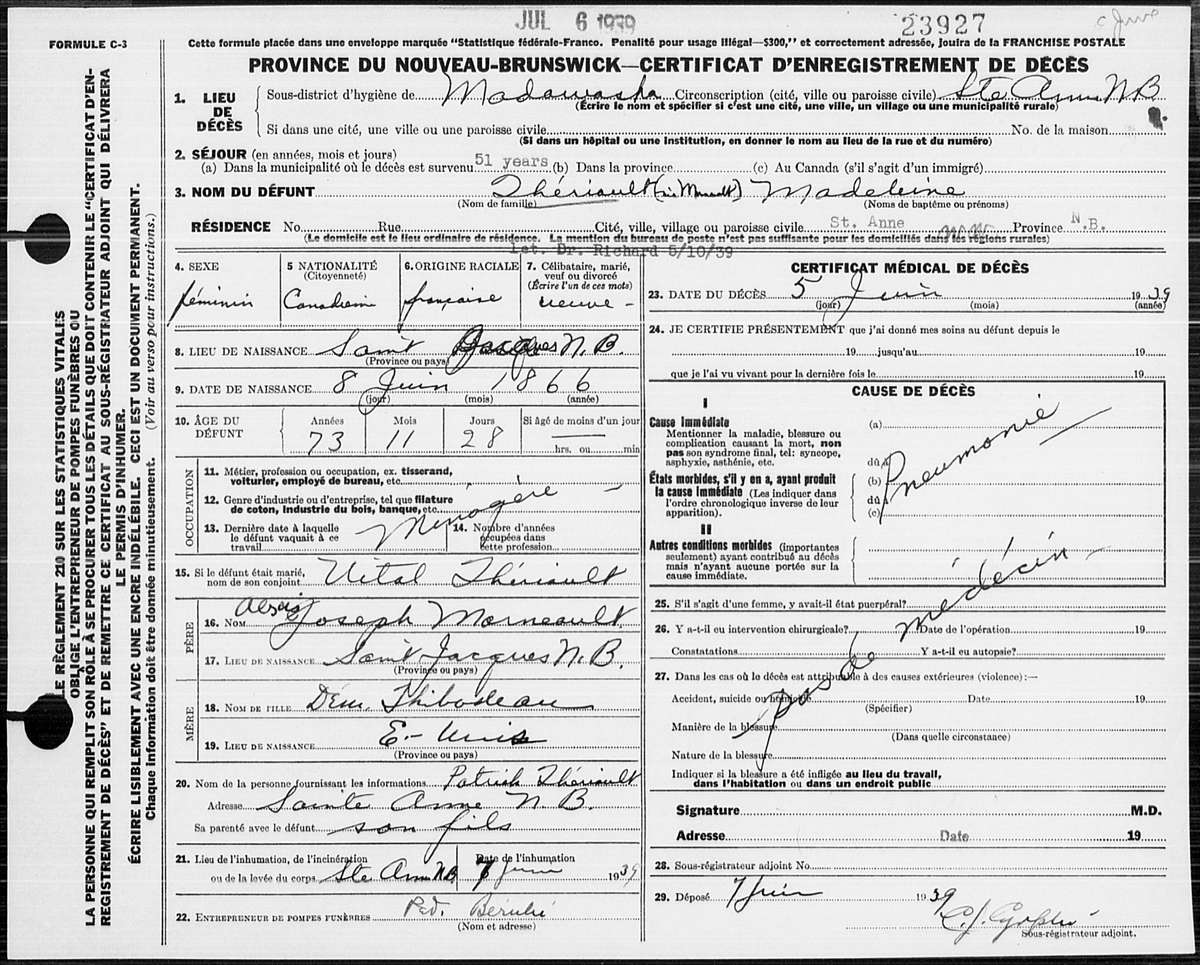 JUL 6 1939
23927
FORMULE C-3
Cette formule placée dans une enveloppe marquée "Statistique fédérale-Franco. Penalité pour usage illégal—$300," et correctement adressée, jouira de la FRANCHISE POSTALE
PROVINCE DU NOUVEAU-BRUNSWICK—CERTIFICAT D'ENREGISTREMENT DE DÉCÈS
LE RÈGLEMENT 210 SUR LES STATISTIQUES VITALES
OBLIGE L'ENTREPRENEUR DE POMPES FUNÈBRES OU
LA PERSONNE QUI REMPLIT SON RÔLE À SE PROCURER TOUS LES DÉTAILS QUE DOIT CONTENIR LE "CERTIFICAT D'EN-
REGISTREMENT DE DÉCÈS" ET DE REMETTRE CE CERTIFICAT AU SOUS-RÉGISTRATEUR ADJOINT QUI DÉLIVRERA
LE PERMIS D'INHUMER.
ÉCRIRE LISIBLEMENT AVEC UNE ENCRE INDÉLÉBILE. CECI EST UN DOCUMENT PERMANENT.
Chaque information doit être donnée minutieusement. (Voir au verso pour instructions.)
1. LIEU DE DÉCÈS
Sous-district d'hygiène de Madawaska Circonscription (cité, ville ou paroisse civile) Ste Anne N B
(Écrire le nom et spécifier si c'est une cité, une ville, un village ou une municipalité rurale)
Si dans une cité, une ville ou une paroisse civile No. de la maison
(Si dans un hôpital ou une institution, en donner le nom au lieu de la rue et du numéro)
2. SÉJOUR (en années, mois et jours)
(a) Dans la municipalité où le décès est survenu 51 years (b) Dans la province (c) Au Canada (s'il s'agit d'un immigré)
3. NOM DU DÉFUNT Thériault Madeleine
(Nom de famille) (Noms de baptême ou prénoms)
RÉSIDENCE No. Rue Cité, ville, village ou paroisse civile St. Anne Province N.B.
(Le domicile est le lieu ordinaire de résidence. La mention du bureau de poste n'est pas suffisante pour les domiciliés dans les régions rurales)
Let. Dr. Richard 5/10/39
4. SEXE
féminin
5 NATIONALITÉ
(Citoyenneté)
Canadienne
6. ORIGINE RACIALE
française
7. Célibataire, marié,
veuf ou divorcé
(Écrire l'un de ces mots)
veuve -
8. LIEU DE NAISSANCE Saint Jacques N. B.
(Province ou pays)
9. DATE DE NAISSANCE 8 Juin 1866
(jour) (mois) (année)
10. ÂGE DU DÉFUNT
Années Mois Jours Si âgé de moins d'un jour
73 11 28
hrs. ou min
OCCUPATION
11. Métier, profession ou occupation, ex. tisserand,
voiturier, employé de bureau, etc.
12. Genre d'industrie ou d'entreprise, tel que filature
de coton, industrie du bois, banque, etc.
Ménagère
13. Dernière date à laquelle
le défunt vaquait à ce
travail
14. Nombre d'années
occupées dans
cette profession
15. Si le défunt était marié,
nom de son conjoint Vital Thériault
PÈRE
16. NOM Joseph Morneault
17. LIEU DE NAISSANCE Saint Jacques N. B.
(Province ou pays)
MÈRE
18. NOM DE FILLE Thibodeau
19. LIEU DE NAISSANCE E.-Unis
(Province ou pays)
20. Nom de la personne fournissant les informations Patrick Thériault
Adresse Sainte Anne N B.
Sa parenté avec le défunt son fils
21. Lieu de l'inhumation, de l'incinération
ou de la levée du corps Ste Anne N.B.
Date de l'inhumation
7 juin 1939
22. ENTREPRENEUR DE POMPES FUNÈBRES
(Nom et adresse)
CERTIFICAT MÉDICAL DE DÉCÈS
23. DATE DU DÉCÈS 5 Juin 1939
(jour) (mois) (année)
24. JE CERTIFIE PRÉSENTEMENT que j'ai donné mes soins au défunt depuis le
19 jusqu'au 19
que je l'ai vu vivant pour la dernière fois le 19
CAUSE DE DÉCÈS
I
Cause Immédiate
Mentionner la maladie, blessure ou
complication causant la mort, non
pas son syndrome final, tel: syncope,
asphyxie, asthénie, etc.
(a)
dû à
États morbides, s'il y en a, ayant produit
la cause immédiate (Les indiquer dans
l'ordre chronologique inverse de leur
apparition).
(b)
dû à
(c)
Pneumonie
II
Autres conditions morbides (importantes
seulement) ayant contribué au décès
mais n'ayant aucune portée sur la
cause immédiate.
pas de médécin
25. S'il s'agit d'une femme, y avait-il état puerpéral?
26. Y a-t-il eu intervention chirurgicale? Date de l'opération 19
Constatations Y a-t-il eu autopsie?
27. Dans les cas où le décès est attribuable à des causes extérieures (violence) :—
Accident, suicide ou homicide Date 19
(Spécifier)
Manière de la blessure
(Dans quelle circonstance)
Nature de la blessure
Indiquer si la blessure a été infligée au lieu du travail,
dans l'habitation ou dans un endroit public
Signature M.D.
Adresse Date 19
28. Sous-régistrateur adjoint No.
29. Déposé 7 Juin 1939
Sous-régistrateur adjoint.